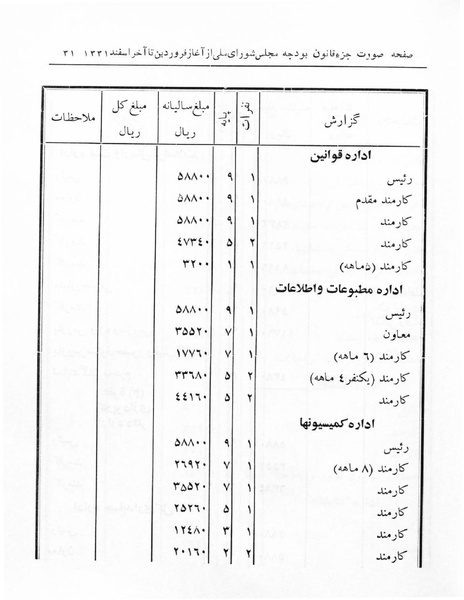 صفحه صورت جزء قانون بودجه مجلس شورای ملی از آغاز فروردین تا آخر اسفند ۱۳۳۱ ۳۱
گزارش نفرات پایه مبلغ سالیانه ریال مبلغ کل ریال ملاحظات
اداره قوانین
رئیس ۱ ۹ ۵۸۸۰۰
کارمند مقدم ۱ ۹ ۵۸۸۰۰
کارمند ۱ ۹ ۵۸۸۰۰
کارمند ۲ ۵ ۴۷۳۴۰
کارمند (۵ماهه) ۱ ۱ ۳۲۰۰
اداره مطبوعات واطلاعات
رئیس ۱ ۹ ۵۸۸۰۰
معاون ۱ ۷ ۳۵۵۲۰
کارمند (۶ ماهه) ۱ ۷ ۱۷۷۶۰
کارمند (یکنفر ۴ ماهه) ۲ ۵ ۳۳۶۸۰
کارمند ۲ ۵ ۴۴۱۶۰
اداره کمیسیونها
رئیس ۱ ۹ ۵۸۸۰۰
کارمند (۸ ماهه) ۱ ۷ ۲۶۹۲۰
کارمند ۱ ۷ ۳۵۵۲۰
کارمند ۱ ۵ ۲۵۲۶۰
کارمند ۱ ۳ ۱۲۴۸۰
کارمند ۲ ۲ ۲۰۱۶۰